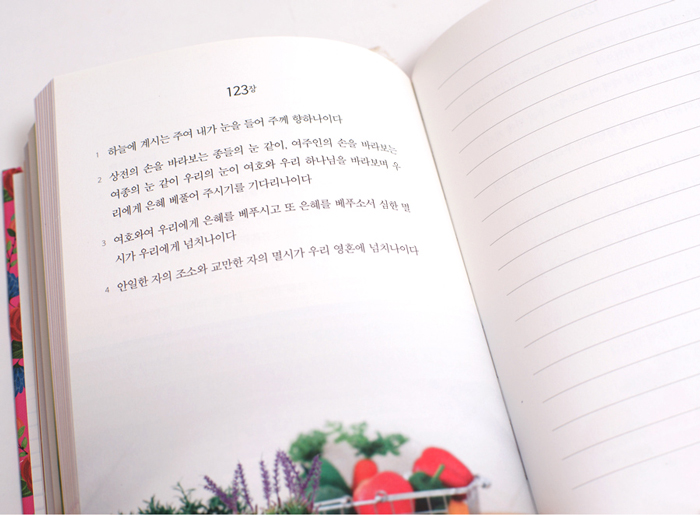 123장
1 하늘에 계시는 주여 내가 눈을 들어 주께 향하나이다
2 상전의 손을 바라보는 종들의 눈 같이, 여주인의 손을 바라보는
여종의 눈 같이 우리의 눈이 여호와 우리 하나님을 바라보며 우
리에게 은혜 베풀어 주시기를 기다리나이다
3 여호와여 우리에게 은혜를 베푸시고 또 은혜를 베푸소서 심한 멸
시가 우리에게 넘치나이다
4 안일한 자의 조소와 교만한 자의 멸시가 우리 영혼에 넘치나이다